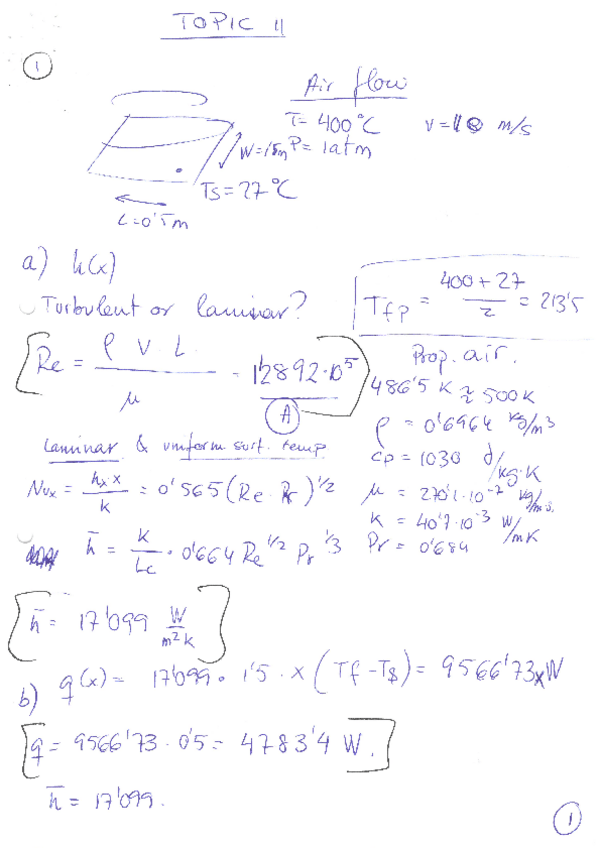 TOPIC 11
1
Air flow
T= 400°C v=10 m/s
W=1'5m P= 1atm
Ts=27°C
L=0'5m
a) h(x)
Turbulent or laminar?
Tfp = (400+27)/2 = 213'5
Re = ρ V L / μ = 1'2892·10^5
A
Prop. air.
486'5 K ≈ 500K
ρ = 0'6964 kg/m3
Cp = 1030 J/kg·K
μ = 270'1·10^-7 kg/m·s
K = 40'7·10^-3 W/mK
Pr = 0'684
Laminar & uniform surf. temp
Nux = hx·x / k = 0'565 (Re·Pr)^1/2
h̄ = K/Lc · 0'664 Re^1/2 Pr^1/3
h̄ = 17'099 W/m²K
b) q(x) = 17'099 · 1'5 · x (Tf-Ts) = 9566'73x W
q = 9566'73 · 0'5 = 4783'4 W.
h̄ = 17'099.
1